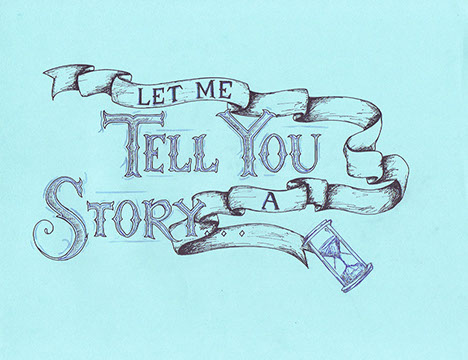 LET ME
TELL YOU
A
STORY...